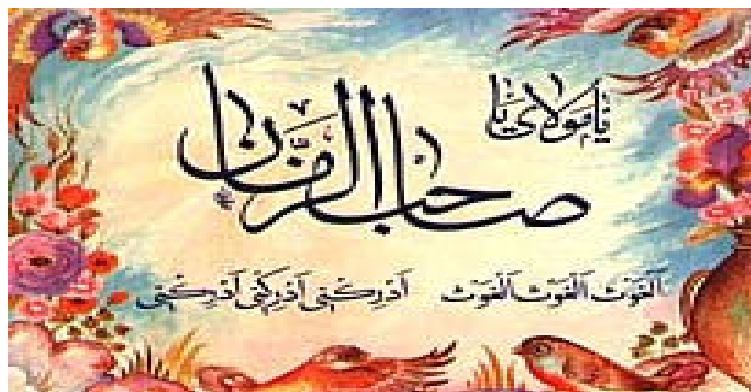 یا مولای یا
صاحب الزمان
اَلْغَوْثَ اَلْغَوْثَ اَلْغَوْثَ اَدْرِكْنی اَدْرِكْنی اَدْرِكْنی